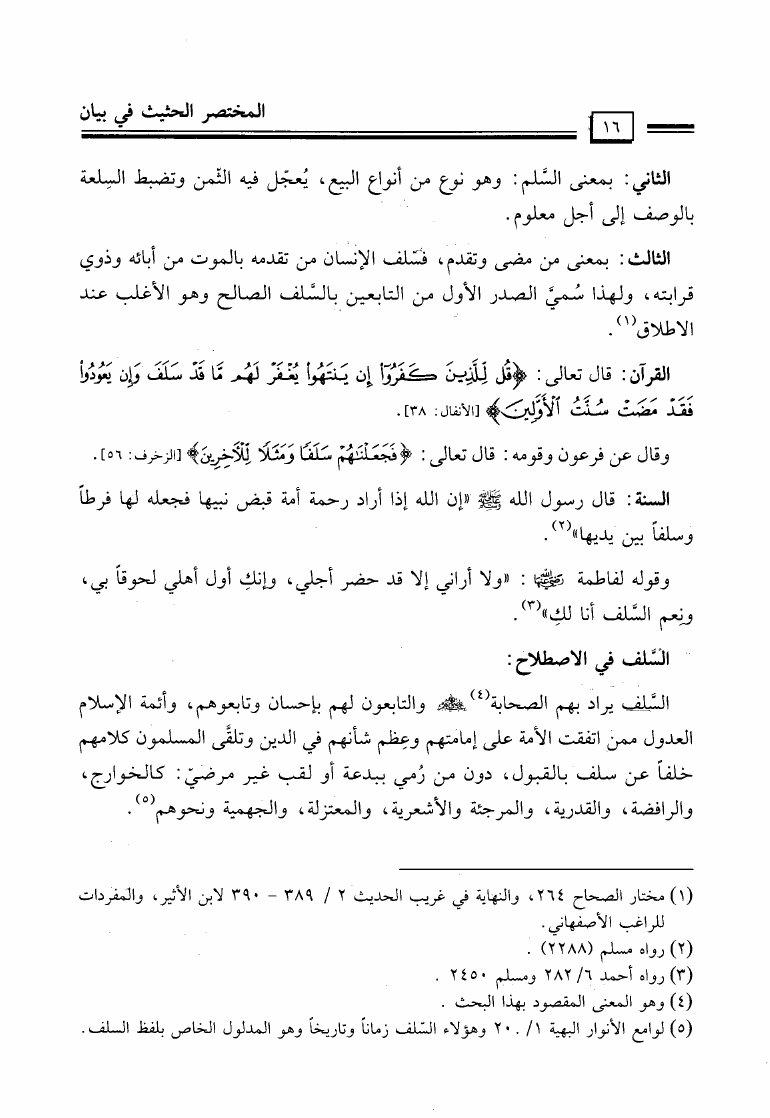 المختصر الحثيث في بيان
١٦
الثاني: بمعنى السَّلم: وهو نوع من أنواع البيع، يُعجّل فيه الثّمن وتضبط السِلعة
بالوصف إلى أجل معلوم.
الثالث: بمعنى من مضى وتقدم، فسّلف الإنسان من تقدمه بالموت من أبائه وذوي
قرابته، ولهذا سُميَّ الصدر الأول من التابعين بالسَّلف الصالح وهو الأغلب عند
الاطلاق(١).
القرآن: قال تعالى: ﴿قُل لِّلَّذِينَ كَفَرُوٓاْ إِن يَنتَهُواْ يُغْفَرْ لَهُم مَّا قَدْ سَلَفَ وَإِن يَعُودُواْ
فَقَدْ مَضَتْ سُنَّتُ ٱلْأَوَّلِينَ﴾ [الأنفال: ٣٨].
وقال عن فرعون وقومه: قال تعالى: ﴿فَجَعَلْنَٰهُمْ سَلَفًا وَمَثَلًا لِّلْأَخِرِينَ﴾ [الزخرف: ٥٦].
السنة: قال رسول الله ﷺ «إن الله إذا أراد رحمة أمة قبض نبيها فجعله لها فرطاً
وسلفاً بين يديها»(٢).
وقوله لفاطمة رضي الله عنها: «ولا أراني إلا قد حضر أجلي، وإنكِ أول أهلي لحوقاً بي،
ونِعم السَّلف أنا لكِ»(٣).
السَّلف في الاصطلاح:
السَّلف يراد بهم الصحابة(٤) رضي الله عنهم والتابعون لهم بإحسان وتابعوهم، وأئمة الإسلام
العدول ممن اتفقت الأمة على إمامتهم وعِظم شأنهم في الدين وتلقَّى المسلمون كلامهم
خلفاً عن سلف بالقبول، دون من رُمي ببدعة أو لقب غير مرضيّ: كالخوارج،
والرافضة، والقدرية، والمرجئة والأشعرية، والمعتزلة، والجهمية ونحوهم(٥).
(١) مختار الصحاح ٢٦٤، والنهاية في غريب الحديث ٢ / ٣٨٩ – ٣٩٠ لابن الأثير، والمفردات
للراغب الأصفهاني.
(٢) رواه مسلم (٢٢٨٨) .
(٣) رواه أحمد ٦/ ٢٨٢ ومسلم ٢٤٥٠ .
(٤) وهو المعنى المقصود بهذا البحث .
(٥) لوامع الأنوار البهية ١/ ٢٠. وهؤلاء السّلف زماناً وتاريخاً وهو المدلول الخاص بلفظ السلف.